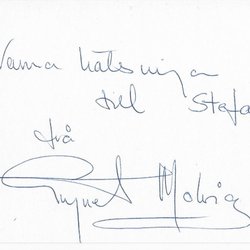 Varma hälsningar
till Stefa
från
Yngvet Molvig